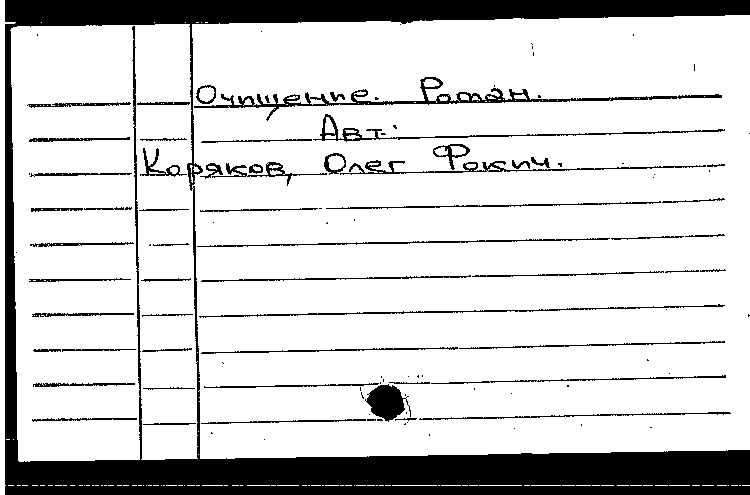 Очищение. Роман.
Авт.:
Коряков, Олег Фокич.